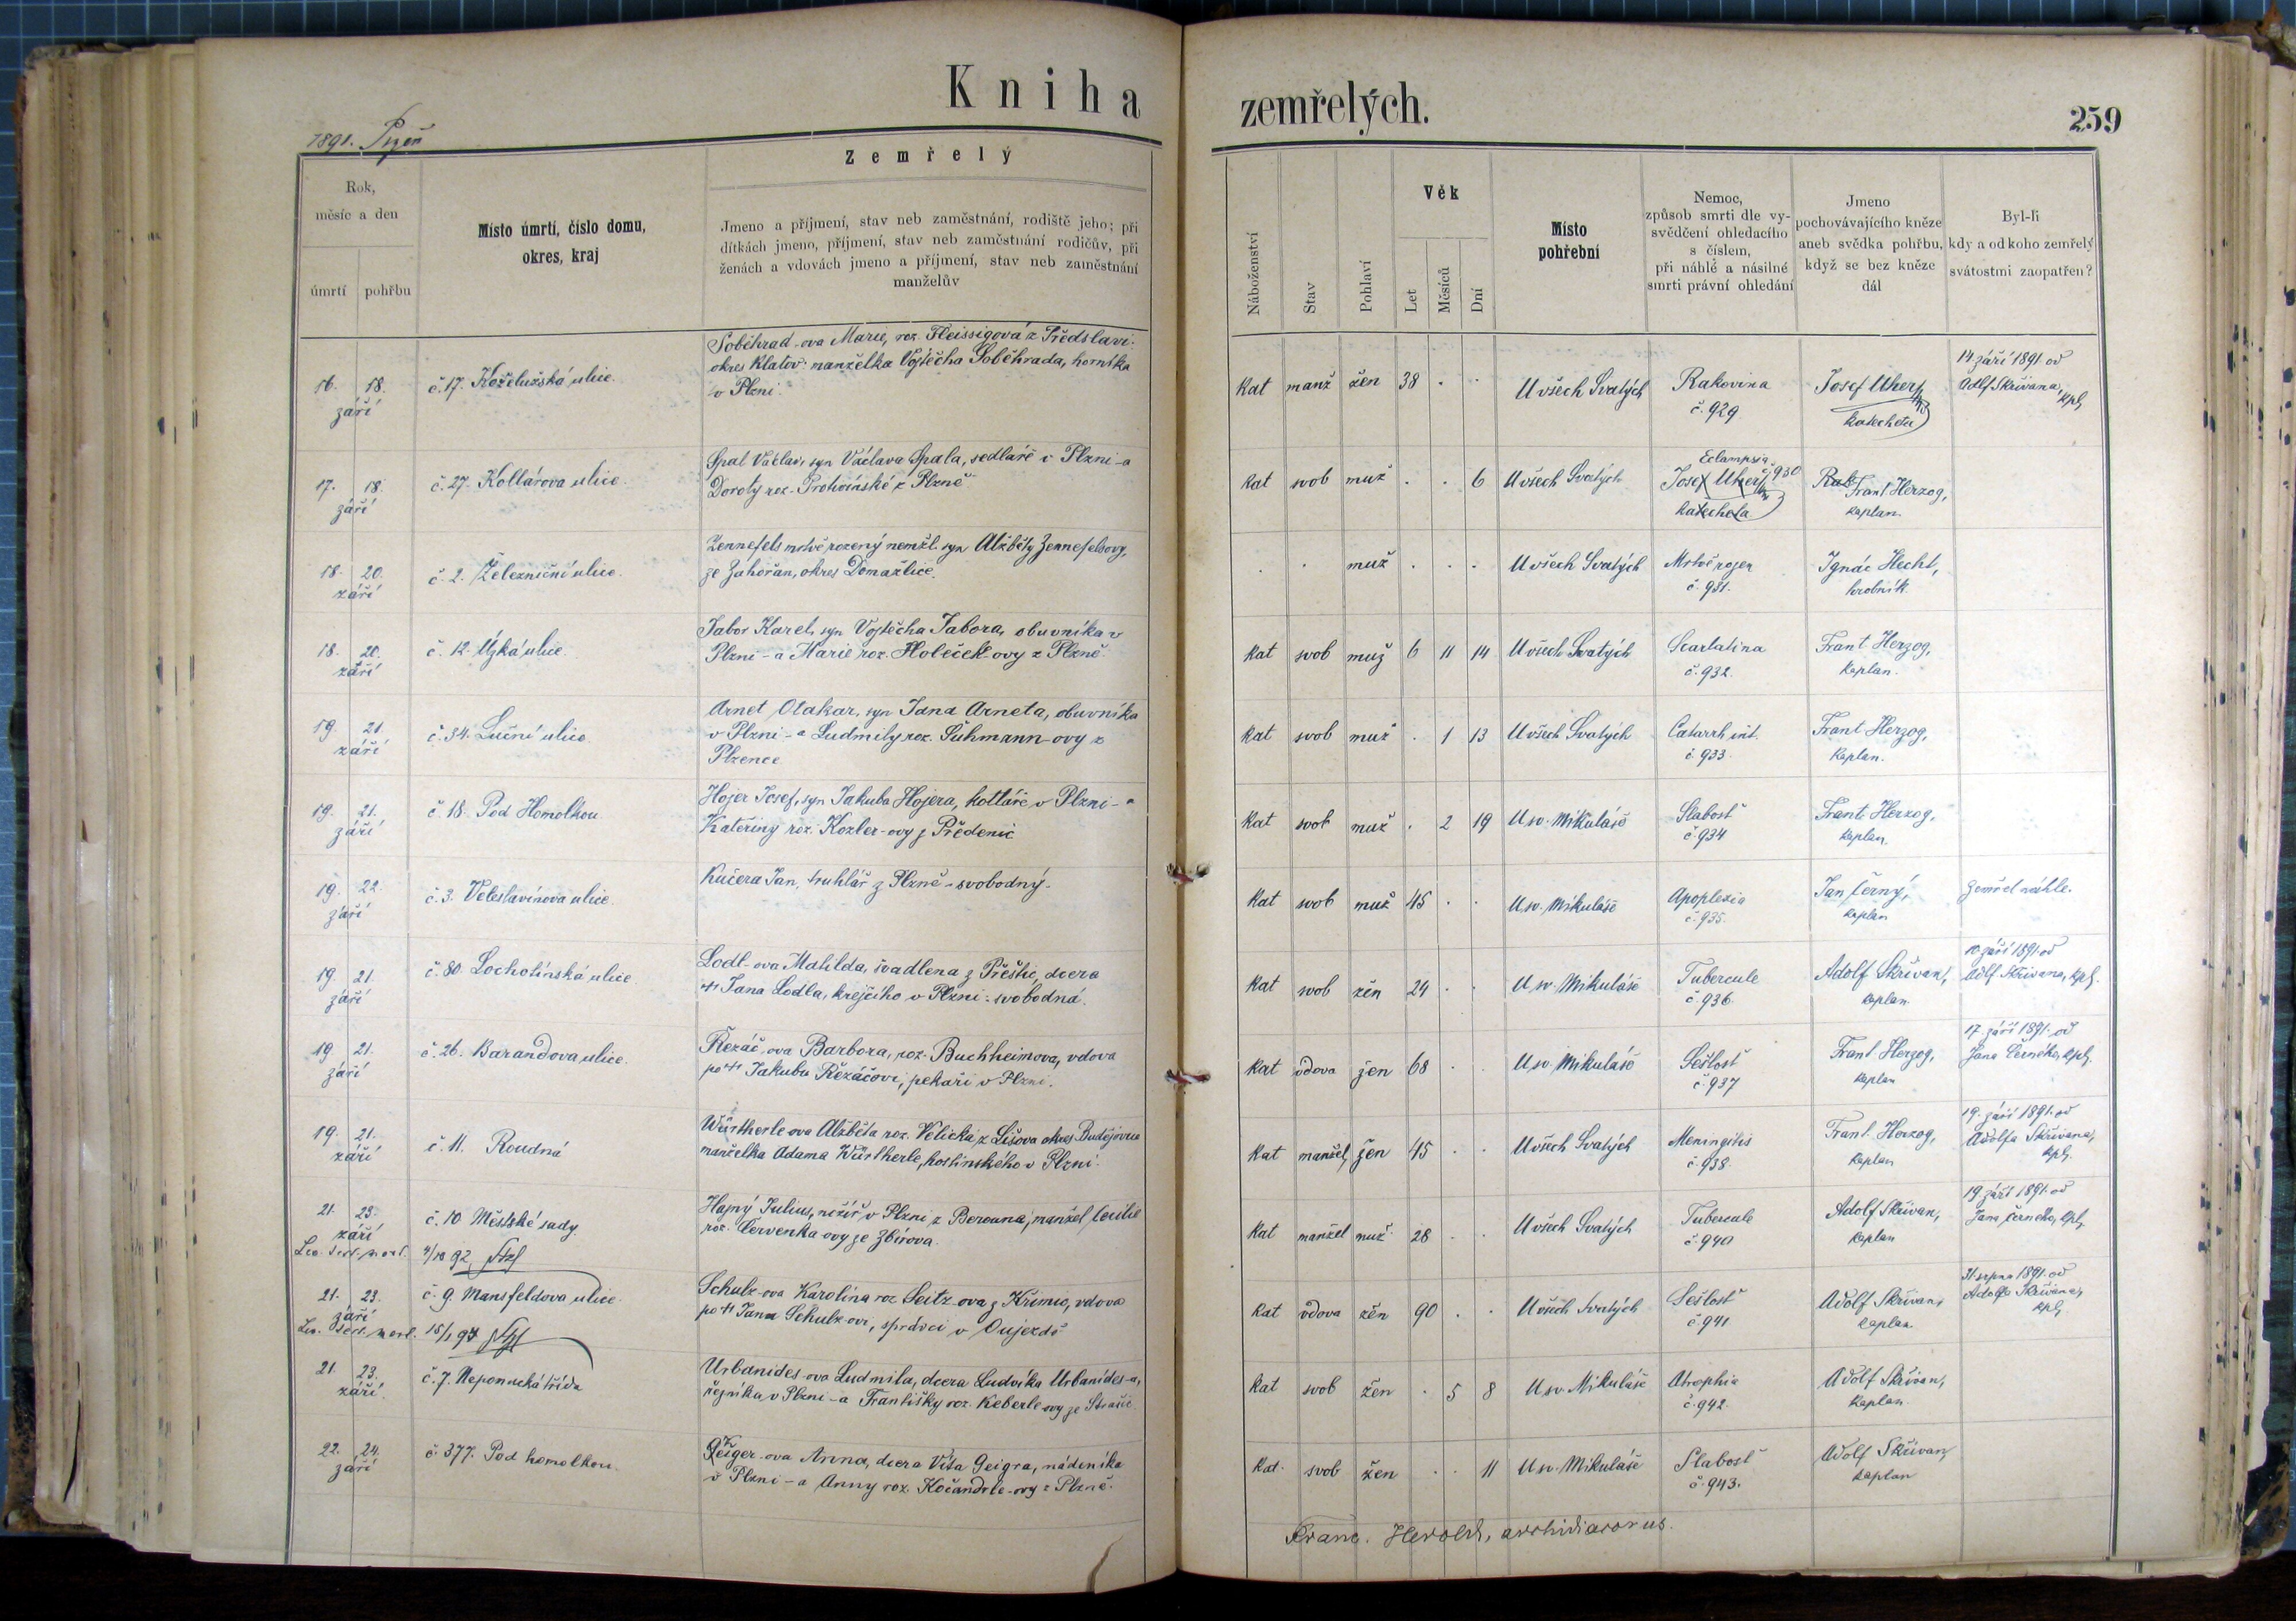 Kniha zemřelých.
259
1891. Plzeň
Rok,
měsíc a den
úmrtí
pohřbu
Místo úmrtí, číslo domu,
okres, kraj
Zemřelý
Jmeno a příjmení, stav neb zaměstnání, rodiště jeho; při
dítkách jmeno, příjmení, stav neb zaměstnání rodičův, při
ženách a vdovách jmeno a příjmení, stav neb zaměstnání
manželův
Náboženství
Stav
Pohlaví
Věk
Let
Měsíců
Dní
Místo
pohřební
Nemoc,
způsob smrti dle vy-
svědčení ohledacího
s číslem,
při náhlé a násilné
smrti právní ohledání
Jmeno
pochovávajícího kněze
aneb svědka pohřbu,
když se bez kněze
dál
Byl-li
kdy a od koho zemřelý
svátostmi zaopatřen?
16. 18.
září
č. 17. Koželužská ulice.
Soběhrad-ova Marie, roz. Fleissigová z Předslavi.
okres Klatov: manželka Vojtěcha Soběhrada, horníka
v Plzni.
Kat manž žen 38 . .
U všech Svatých
Rakovina
č. 929
Josef Uher
katecheta
14 září 1891. od
Adlf. Skřivana,
kpl.
17. 18.
září
č. 27. Kollárova ulice
Spal Václav, syn Václava Spala, sedláře v Plzni - a
Doroty roz. Protivínské z Plzně
Kat svob muž . . 6
U všech Svatých
Eclampsia
č. 930
Josef Uher
katecheta
Frant Herzog,
kaplan.
18. 20.
září
č. 2. Železniční ulice.
Zennefels mrtvě rozený nemžl. syn Alžběty Zennefelsovy,
ze Zahořan, okres Domažlice.
. . muž . . .
U všech Svatých
Mrtvě rozen
č. 931.
Ignác Hecht,
hrobník.
18. 20.
září
č. 12. Úzká ulice.
Tabor Karel, syn Vojtěcha Tabora, obuvníka v
Plzni - a Marie roz. Holeček-ovy z Plzně.
Kat svob muž 6 11 14
U všech Svatých
Scarlatina
č. 932.
Frant Herzog,
kaplan.
19. 21.
září
č. 34. Luční ulice.
Arnet Otakar, syn Jana Arneta, obuvníka
v Plzni - a Ludmily roz. Suhmann-ovy z
Plzence
Kat svob muž . 1 13
U všech Svatých
Catarrh int.
č. 933.
Frant Herzog,
kaplan.
19. 21.
září
č. 18. Pod Homolkou
Hojer Josef, syn Jakuba Hojera, kotláře v Plzni - a
Kateřiny roz. Kozler-ovy z Předenic
Kat svob muž . 2 19
U sv. Mikuláše
Slabosť
č. 934
Frant Herzog,
kaplan.
19. 22.
září
č. 3. Veleslavínova ulice.
Kučera Jan, truhlář z Plzně - svobodný.
Kat svob muž 45 . .
U sv. Mikuláše
Apoplexia
č. 935.
Jan Černý,
kaplan
Zemřel náhle.
19 21.
září
č. 80. Lochotínská ulice
Lodl-ova Mathilda, švadlena z Přeštic, dcera
† Jana Lodla, krejčího v Plzni: svobodná.
Kat svob žen 24 . .
U sv. Mikuláše
Tubercule
č. 936.
Adolf Skřivan,
kaplan
10. září 1891. od
Adlf. Skřivana, kpl.
19 21.
září
č. 26. Barandova ulice.
Řezáč-ova Barbora, roz. Buchheimova, vdova
po † Jakubu Řezáčovi, pekaři v Plzni.
Kat vdova žen 68 . .
U sv. Mikuláše
Sešlosť
č. 937
Frant Herzog,
kaplan
17. září 1891. od
Jana Černého, kpl.
19. 21.
září
č. 11. Roudná
Würtherle-ova Alžběta roz. Velická z Lišova okres Budějovice
manželka Adama Würtherle, hostinského v Plzni.
Kat manžel, žen 45 . .
U všech Svatých
Meningitis
č. 938.
Frant Herzog,
kaplan
19. září 1891. od
Adolfa Skřivana,
kpl.
21. 23.
září
č. 10 Městské sady.
Hajný Julius, nožíř v Plzni z Berouna, manžel Cecilie
roz. Červenka-ovy ze Zbirova.
Kat manžel muž 28 . .
U všech Svatých
Tubercule
č. 940
Adolf Skřivan,
kaplan
19 září 1891. od
Jana Černého, kpl.
21. 23.
září
č. 9. Mansfeldova ulice.
Schulz-ova Karolina roz Seitz-ova z Křimic, vdova
po † Janu Schulz-ovi, správci v Oujezdě
Kat vdova žen 90 . .
U všech Svatých
Sešlosť
č. 941
Adolf Skřivan,
kaplan.
31 srpna 1891. od
Adolfa Skřivana,
kpl.
21 23.
září.
č. 7. Nepomucká třída
Urbanides-ova Ludmila, dcera Ludvíka Urbanides-a,
řezníka v Plzni - a Františky roz. Keberle-ovy ze Strašic.
Kat svob žen . 5 8
U sv. Mikuláše
Atrophia
č. 942.
Adolf Skřivan,
kaplan.
22. 24.
září
č. 377. Pod homolkou.
Geiger-ova Anna, dcera Víta Geigra, nádeníka
v Plzni - a Anny roz. Kočandrle-ovy z Plzně.
Kat. svob žen . . 11
U sv. Mikuláše
Slabosť
č. 943.
Adolf Skřivan,
kaplan
Franc. Herold, archidiaconus.